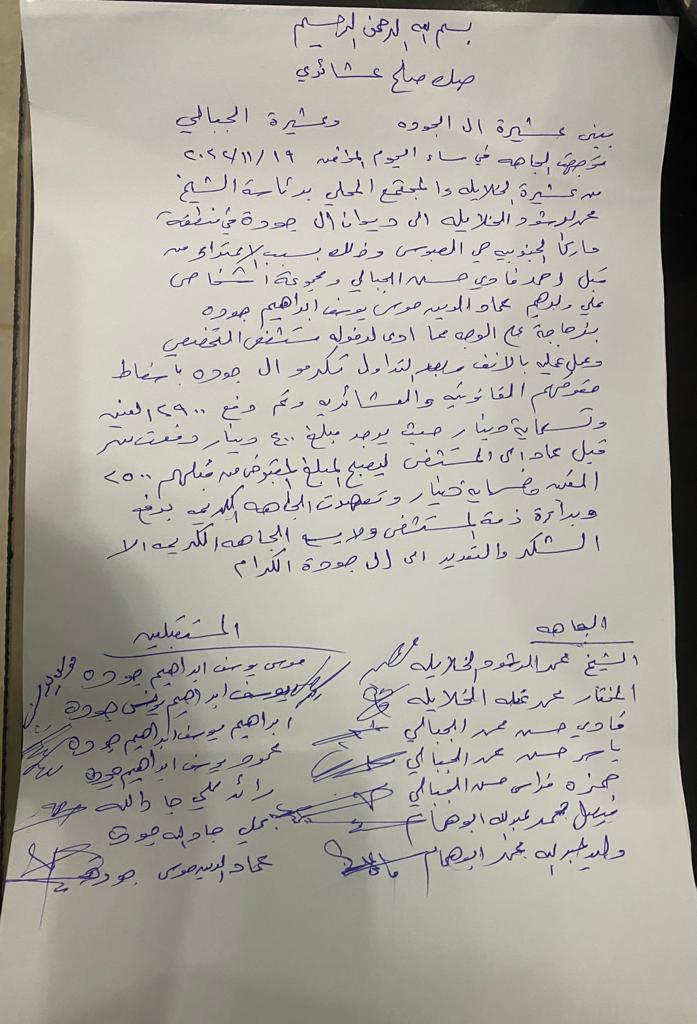 بسم الله الرحمن الرحيم
صك صلح عشائري
بين عشيرة ال الجوده وعشيرة الجبالي
توجهت الجاهه في مساء اليوم الموافق ٢٠٢٢/١١/١٩
من عشيرة الخلايله والمجتمع المحلي برئاسة الشيخ
محمد الرشود الخلايله الى ديوان ال جودة في منطقة
ماركا الجنوبيه حي العبوس وذلك بسبب الاعتداء من
قبل احمد فادي حسن الجبالي ومجموعة اشخاص
على ولدهم عماد الدين موسى يوسف ابراهيم جوده
بزجاجة على الوجه مما ادى لدخوله مستشفى التخصصي
وعمل عمليه بالانف وبعد التداول تكرمو ال جوده باسقاط
حقوقهم القانونيه والعشائريه وتم دفع ٢٩٠٠ الفين
وتسعماية دينار حيث يوجد مبلغ ٤٠٠ دينار دفعت من
قبل عماد الى المستشفى ليصبح المبلغ المقبوض من قبلهم ٢٥٠٠
الفين وخمسماية دينار وتعهدت الجاهه الكريمه بدفع
وبراءة ذمة المستشفى ولا يسع الجاهه الكريمه الا
الشكر والتقدير الى ال جودة الكرام
الجاهه
الشيخ محمد الرشود الخلايله
المختار محمد الخلايله
فادي حسن محمد الجبالي
ياسر حسن محمد الجبالي
حمزه فراس حسن الجبالي
فيصل محمد عبدالله ابوهمام
وليد عبدالله محمد ابوهمام
المستقبلين
موسى يوسف ابراهيم جوده
يوسف ابراهيم يونس جودة
ابراهيم يوسف ابراهيم جودة
محمود يوسف ابراهيم جودة
رائد علي جادالله
علي جادالله جودة
عماد الدين موسى جودة